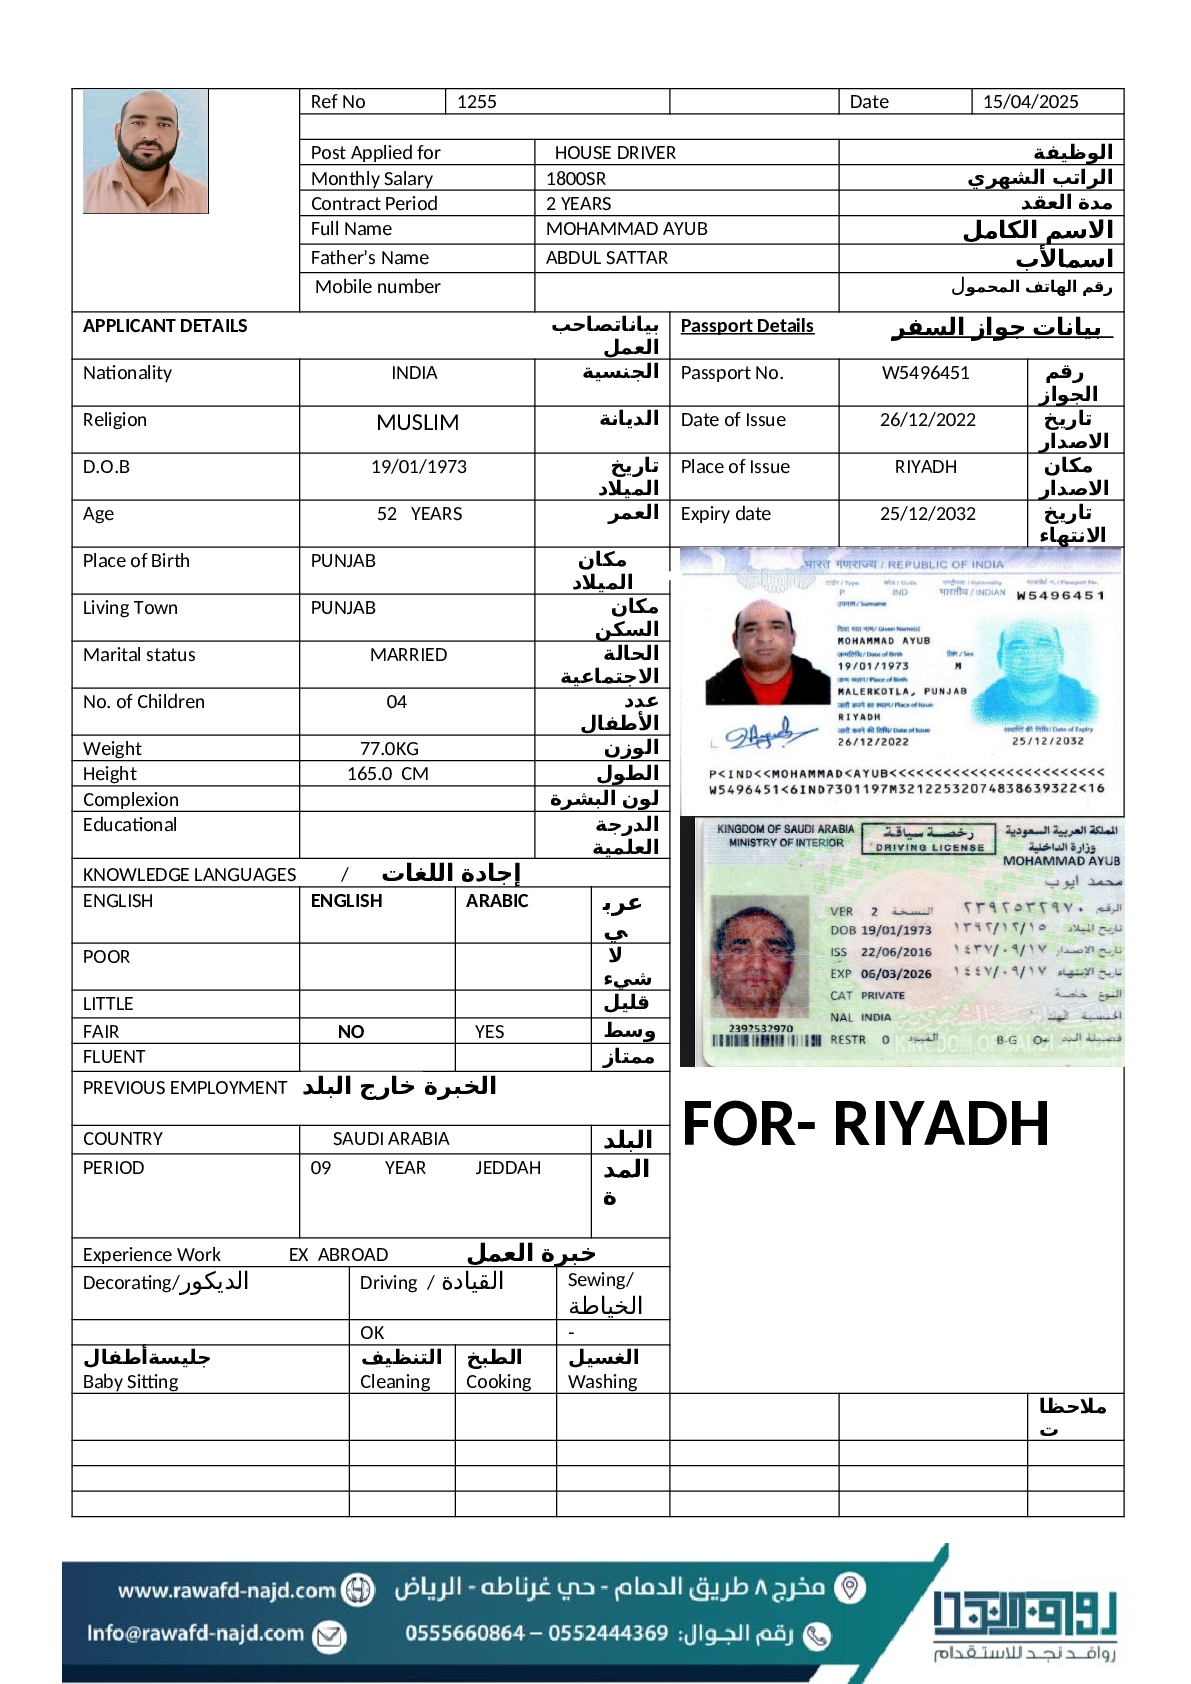 Ref No 1255 Date 15/04/2025
Post Applied for HOUSE DRIVER الوظيفة
Monthly Salary 1800SR الراتب الشهري
Contract Period 2 YEARS مدة العقد
Full Name MOHAMMAD AYUB الاسم الكامل
Father's Name ABDUL SATTAR اسمالأب
Mobile number رقم الهاتف المحمول
APPLICANT DETAILS بياناتصاحب العمل Passport Details بيانات جواز السفر
Nationality INDIA الجنسية Passport No. W5496451 رقم الجواز
Religion MUSLIM الديانة Date of Issue 26/12/2022 تاريخ الاصدار
D.O.B 19/01/1973 تاريخ الميلاد Place of Issue RIYADH مكان الاصدار
Age 52 YEARS العمر Expiry date 25/12/2032 تاريخ الانتهاء
Place of Birth PUNJAB مكان الميلاد
Living Town PUNJAB مكان السكن
Marital status MARRIED الحالة الاجتماعية
No. of Children 04 عدد الأطفال
Weight 77.0KG الوزن
Height 165.0 CM الطول
Complexion لون البشرة
Educational الدرجة العلمية
KNOWLEDGE LANGUAGES / إجادة اللغات
ENGLISH ENGLISH ARABIC عربي
POOR لا شيء
LITTLE قليل
FAIR NO YES وسط
FLUENT ممتاز
PREVIOUS EMPLOYMENT الخبرة خارج البلد
COUNTRY SAUDI ARABIA البلد
PERIOD 09 YEAR JEDDAH المدة
Experience Work EX ABROAD خبرة العمل
Decorating/الديكور Driving / القيادة Sewing/ الخياطة
OK -
جليسةأطفال التنظيف الطبخ الغسيل
Baby Sitting Cleaning Cooking Washing
भारत गणराज्य / REPUBLIC OF INDIA
P IND भारतीय / INDIAN W5496451
उपनाम / Surname
दिया गया नाम / Given Name(s)
MOHAMMAD AYUB
जन्मतिथि / Date of Birth लिंग / Sex
19/01/1973 M
जन्म स्थान / Place of Birth
MALERKOTLA, PUNJAB
जारी करने का स्थान / Place of Issue
RIYADH
जारी करने की तिथि / Date of Issue समाप्ति की तिथि / Date of Expiry
26/12/2022 25/12/2032
P<IND<<MOHAMMAD<AYUB<<<<<<<<<<<<<<<<<<<<<<<<
W5496451<6IND7301197M3212253207483863932​2<16
KINGDOM OF SAUDI ARABIA رخصة سياقة المملكة العربية السعودية
MINISTRY OF INTERIOR DRIVING LICENSE وزارة الداخلية
MOHAMMAD AYUB
محمد ايوب
VER 2 النسخة ٢٣٩٢٥٣٢٩٧٠ الرقم
DOB 19/01/1973 ١٣٩٢/١٢/١٥ تاريخ الميلاد
ISS 22/06/2016 ١٤٣٧/٠٩/١٧ تاريخ الاصدار
EXP 06/03/2026 ١٤٤٧/٠٩/١٧ تاريخ الإنتهاء
CAT PRIVATE النوع خاصة
NAL INDIA الجنسية الهند
2392532970
RESTR 0 القيود B-G O+ فصيلة الدم
FOR- RIYADH
ملاحظات
www.rawafd-najd.com مخرج ٨ طريق الدمام - حي غرناطه - الرياض
Info@rawafd-najd.com رقم الجوال: 0552444369 – 0555660864
روافد نجد
روافد نجد للاستقدام